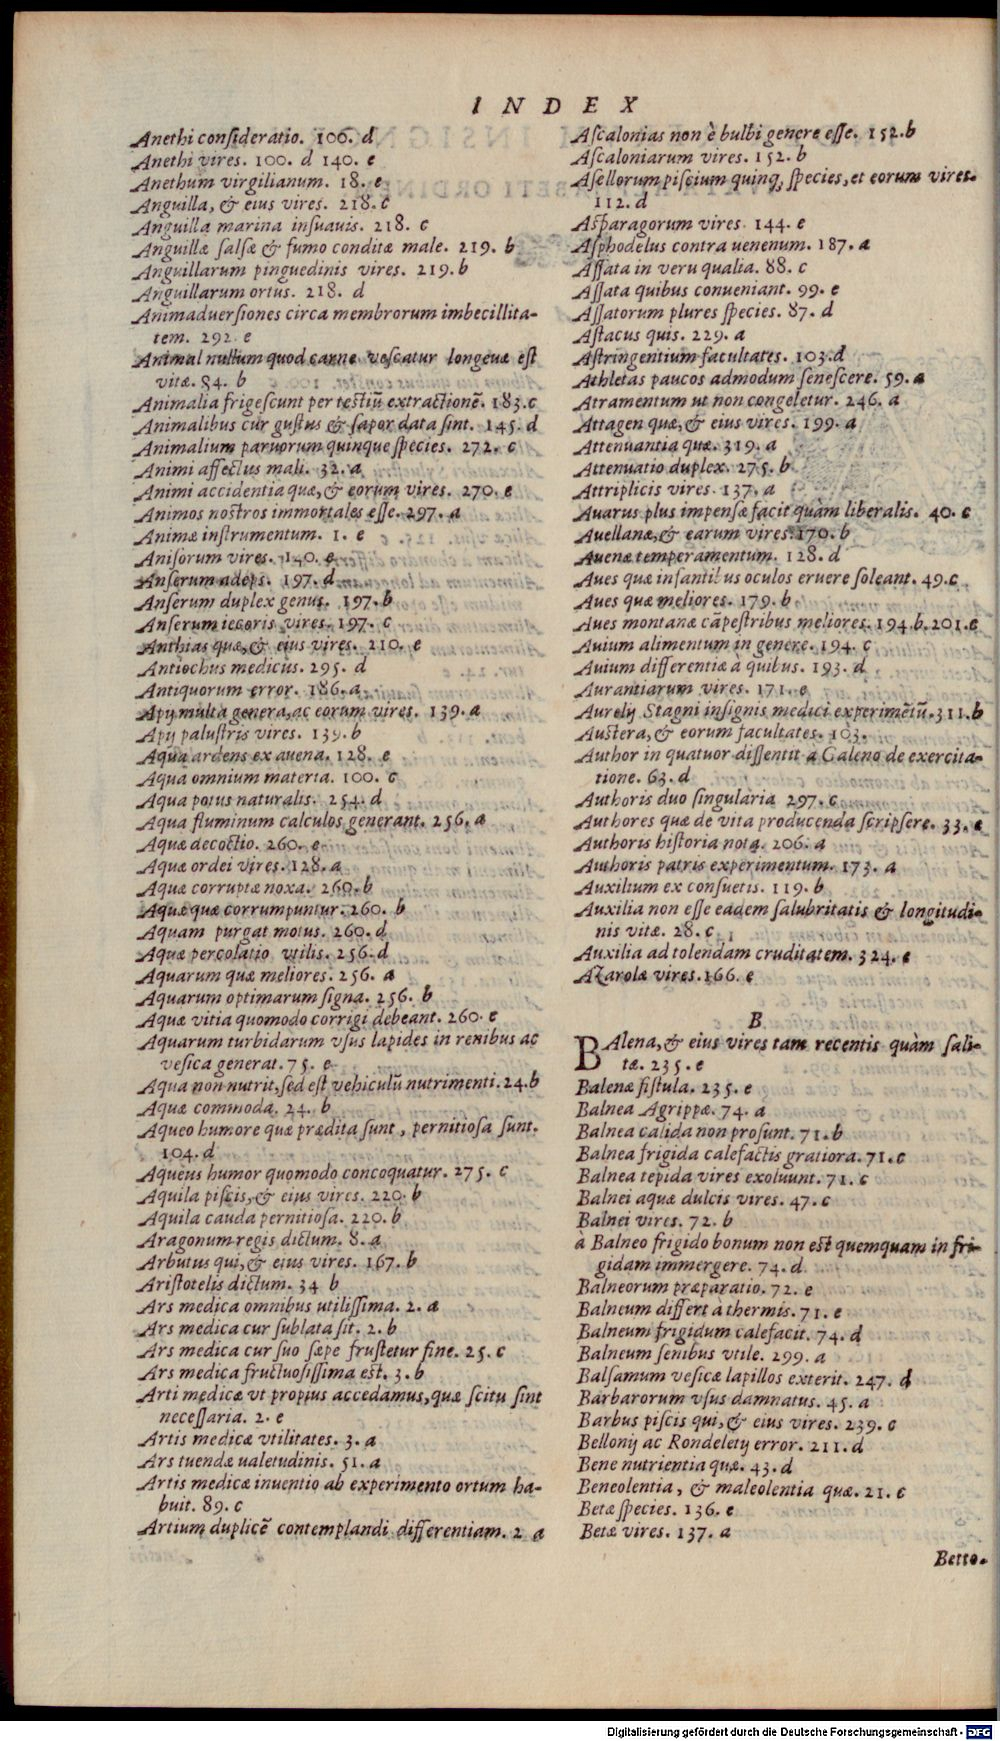 INDEX
Anethi consideratio. 100. d
Anethi vires. 100. d 140. e
Anethum virgilianum. 18. e
Anguilla, & eius vires. 218. c
Anguilla marina insuauis. 218. c
Anguillæ salsæ & fumo conditæ male. 219. b
Anguillarum pinguedinis vires. 219. b
Anguillarum ortus. 218. d
Animaduersiones circa membrorum imbecillita-
tem. 292. e
Animal nullum quod carne vescatur longeuæ est
vitæ. 84. b
Animalia frigescunt per testiũ extractionẽ. 183. c
Animalibus cur gustus & sapor data sint. 145. d
Animalium paruorum quinque species. 272. c
Animi affectus mali. 32. a
Animi accidentia quæ, & eorum vires. 270. e
Animos nostros immortales esse. 297. a
Animæ instrumentum. 1. e
Anisorum vires. 140. e
Anserum adeps. 197. d
Anserum duplex genus. 197. b
Anserum iecoris vires. 197. c
Anthias quæ, & eius vires. 210. e
Antiochus medicus. 295. d
Antiquorum error. 186. a
Apij multa genera, ac eorum vires. 139. a
Apij palustris vires. 139. b
Aqua ardens ex auena. 128. e
Aqua omnium materia. 100. c
Aqua potus naturalis. 254. d
Aqua fluminum calculos generant. 256. a
Aquæ decoctio. 260. e
Aquæ ordei vires. 128. a
Aquæ corruptæ noxa. 260. b
Aquæ quæ corrumpuntur. 260. b
Aquam purgat motus. 260. d
Aquæ percolatio vtilis. 256. d
Aquarum quæ meliores. 256. a
Aquarum optimarum signa. 256. b
Aquæ vitia quomodo corrigi debeant. 260. e
Aquarum turbidarum vsus lapides in renibus ac
vesica generat. 75. e
Aqua non nutrit, sed est vehiculũ nutrimenti. 24. b
Aquæ commoda. 24. b
Aqueo humore quæ prædita sunt, pernitiosa sunt.
104. d
Aqueus humor quomodo concoquatur. 275. c
Aquila piscis, & eius vires. 220. b
Aquila cauda pernitiosa. 220. b
Aragonum regis dictum. 8. a
Arbutus qui, & eius vires. 167. b
Aristotelis dictum. 34 b
Ars medica omnibus utilissima. 2. a
Ars medica cur sublata sit. 2. b
Ars medica cur suo sæpe frustetur fine. 25. c
Ars medica fructuosissima est. 3. b
Arti medicæ vt propius accedamus, quæ scitu sint
necessaria. 2. e
Artis medicæ vtilitates. 3. a
Ars tuendæ ualetudinis. 51. a
Artis medicæ inuentio ab experimento ortum ha-
buit. 89. c
Artium duplicẽ contemplandi differentiam. 2 a
Ascalonias non è bulbi genere esse. 152. b
Ascaloniarum vires. 152. b
Asellorum piscium quinq; species, et eorum vires.
112. d
Asparagorum vires. 144. e
Asphodelus contra uenenum. 187. a
Assata in veru qualia. 88. c
Assata quibus conueniant. 99. e
Assatorum plures species. 87. d
Astacus quis. 229. a
Astringentium facultates. 103. d
Athletas paucos admodum senescere. 59. a
Atramentum ut non congeletur. 246. a
Attagen quæ, & eius vires. 199. a
Attenuantia quæ. 319. a
Attenuatio duplex. 275. b
Attriplicis vires. 137. a
Auarus plus impensæ facit quàm liberalis. 40. c
Auellanæ, & earum vires. 170. b
Auenæ temperamentum. 128. d
Aues quæ infantibus oculos eruere soleant. 49. c
Aues quæ meliores. 179. b
Aues montanæ cãpestribus meliores. 194. b. 201. e
Auium alimentum in genere. 194. c
Auium differentiæ à quibus. 193. d
Aurantiarum vires. 171. e
Aurelij Stagni insignis medici experimẽtũ. 311. b
Austera, & eorum facultates. 103.
Author in quatuor dissentit à Galeno de exercita-
tione. 63. d
Authoris duo singularia 297. c
Authores quæ de vita producenda scripsere. 33. e
Authoris historia nota. 206. a
Authoris patris experimentum. 173. a
Auxilium ex consuetis. 119. b
Auxilia non esse eadem salubritatis & longitudi-
nis vitæ. 28. c
Auxilia ad tolendam cruditatem. 324. e
Azarolæ vires. 166. e
B
BAlena, & eius vires tam recentis quàm sali-
tæ. 235. e
Balenæ fistula. 235. e
Balnea Agrippæ. 74. a
Balnea calida non prosunt. 71. b
Balnea frigida calefactis gratiora. 71. c
Balnea tepida vires exoluunt. 71. c
Balnei aquæ dulcis vires. 47. c
Balnei vires. 72. b
à Balneo frigido bonum non est quemquam in fri-
gidam immergere. 74. d
Balneorum præparatio. 72. e
Balneum differt à thermis. 71. e
Balneum frigidum calefacit. 74. d
Balneum senibus vtile. 299. a
Balsamum vesicæ lapillos exterit. 247. d
Barbarorum vsus damnatus. 45. a
Barbus piscis qui, & eius vires. 239. c
Bellonij ac Rondeletij error. 211. d
Bene nutrientia quæ. 43. d
Beneolentia, & maleolentia quæ. 21. c
Betæ species. 136. e
Betæ vires. 137. a
Betto-
Digitalisierung gefördert durch die Deutsche Forschungsgemeinschaft - DFG